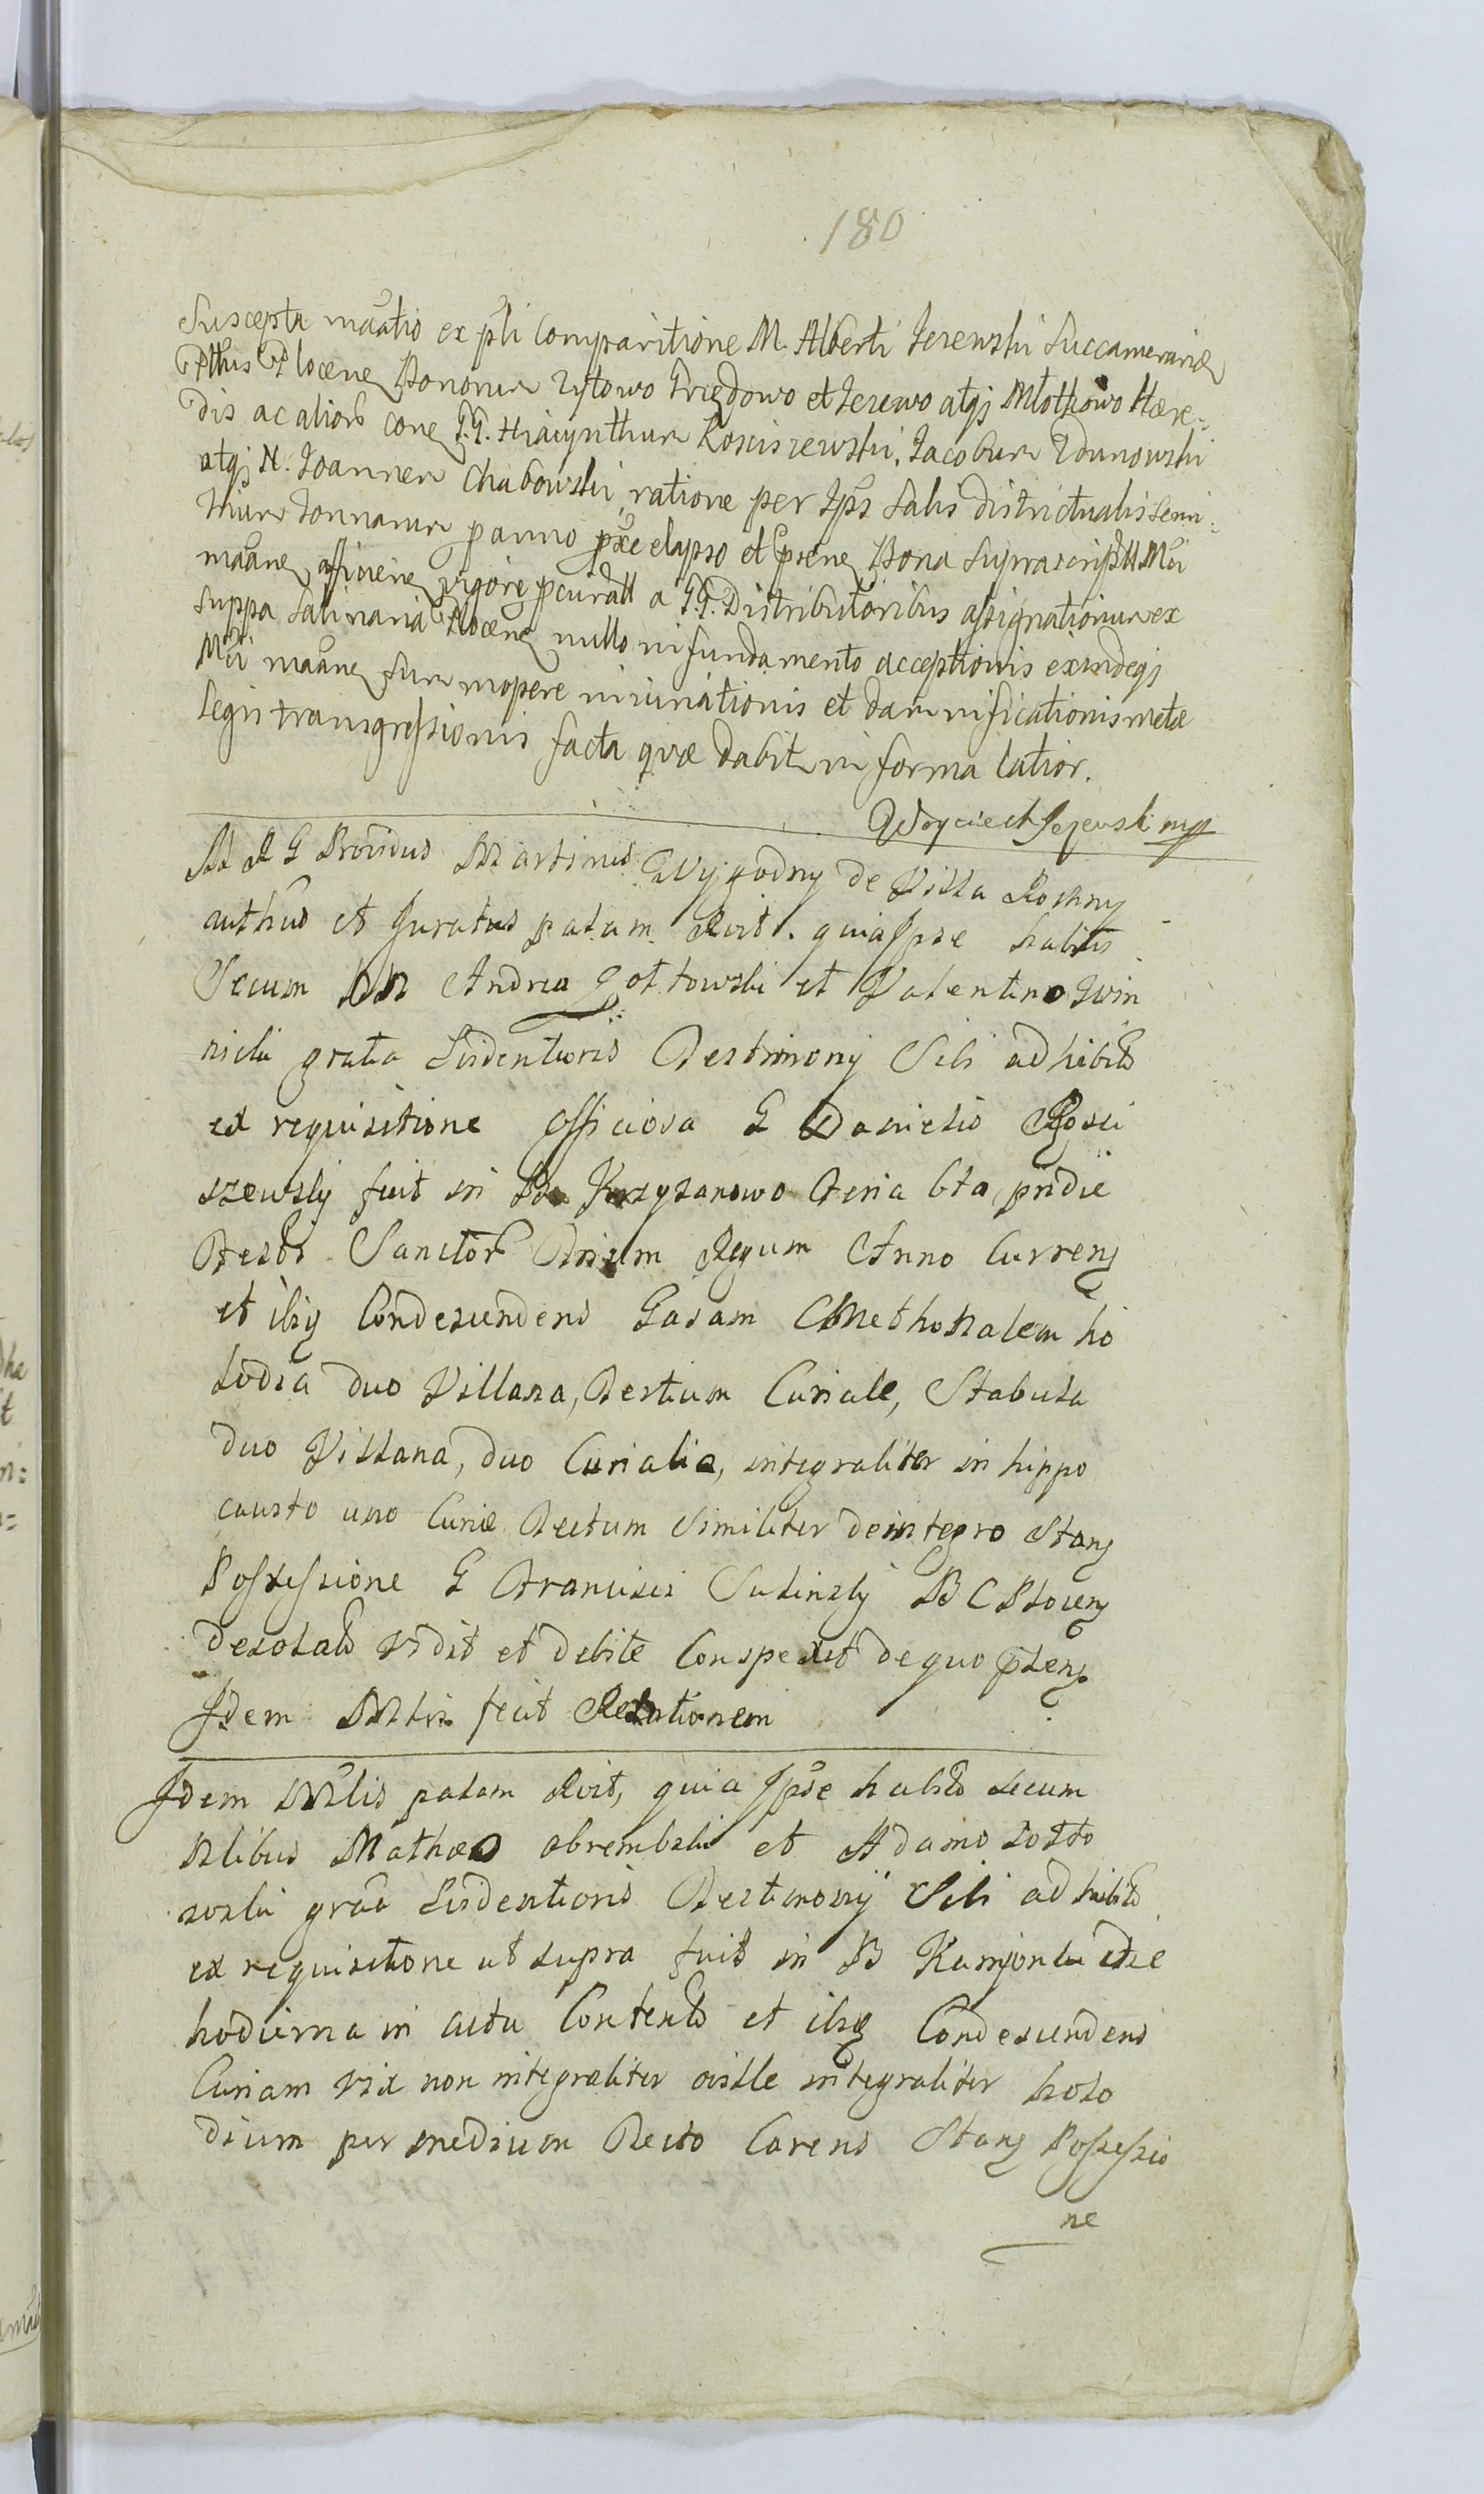 180
Suscepta mãatio ex pti Comparitione M. Alberti Jezewski Succamerariæ
Pttus Plocen Bonorum Zytowo Srzedowo et Jezewo atqs Mlotkowo Hære=
dis ac alior cone G.G. Hiacynthum Kosciszewski, Jacobum Zdunowski
atqs N. Joannem Chabowski, ratione per Ips Salis districtualis Semi=
thium Tonnarum p anno pxe elapso et ptene Bona Suprascript Mci
mãane, vigore pcurat a G.G. Distributoribus assignationum ex
Suppa Salinaria Plocen nullo ni fundamento acceptionis exindeqs
Mci mãane Summopere iniuriationis et damnificationis metæ
Legis transgressionis facta quæ dabit in forma latior.
Woyciech Jezewski mp
Providus Martinus Wygodny de Villa Rothny
auths et Juratus palam Rvit. quia Ipse habitis
Secum NN Andrea Zottowski et Valentino Zwin
nicki gratia Evidentioris Testimonij Sibi adhibit
ex requisitione officiosa G Danielis Kosci
szewsky fuit in Bs Krzyzanowo Feria 6ta pridie
Festi Sanctor Trium Regum Anno Curren
et ibiq Condescendens Casam CMethonalem ho
lodia duo Villana, Tertium Curiale, Stabula
duo Villana, duo Curialia, integraliter in hippo
causto uno Curiæ Tectum Similiter deintegro Stan
Possessione G Francisci Sulinsky B C Plocen
desolat vidit et debite Conspexit de quo pten
Idem Mlis fecit Relationem
Idem Mlis palam Rvit, quia Ipse habit secum
Nlibus Mathæo obrembski et Adamo Zotto
wski gratia Evidentioris Testimonij Sibi adhibit
ex requisitione ut supra fuit in B Kamjonki die
hodierna in actu Content et ibiq Condescendens
Curiam vix non integraliter oville integraliter holo
dium per medium Tecto Carens Stan Possessio
ne